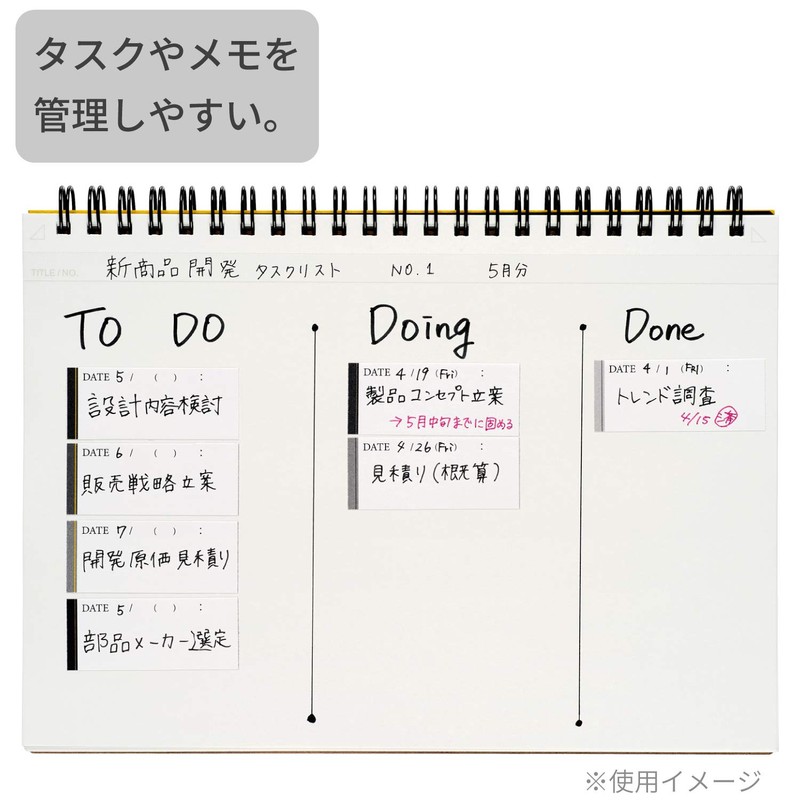 タスクやメモを
管理しやすい。
TITLE / NO.
新商品開発 タスクリスト NO.1 5月分
TO DO
DATE 5/ ( ) :
設計内容検討
DATE 6/ ( ) :
販売戦略立案
DATE 7/ ( ) :
開発原価見積り
DATE 5/ ( ) :
部品メーカー選定
Doing
DATE 4/19 (Fri) :
製品コンセプト立案
→5月中旬までに固める
DATE 4/26 (Fri) :
見積り(概算)
Done
DATE 4/1 (FRI) :
トレンド調査
4/15 済
※使用イメージ